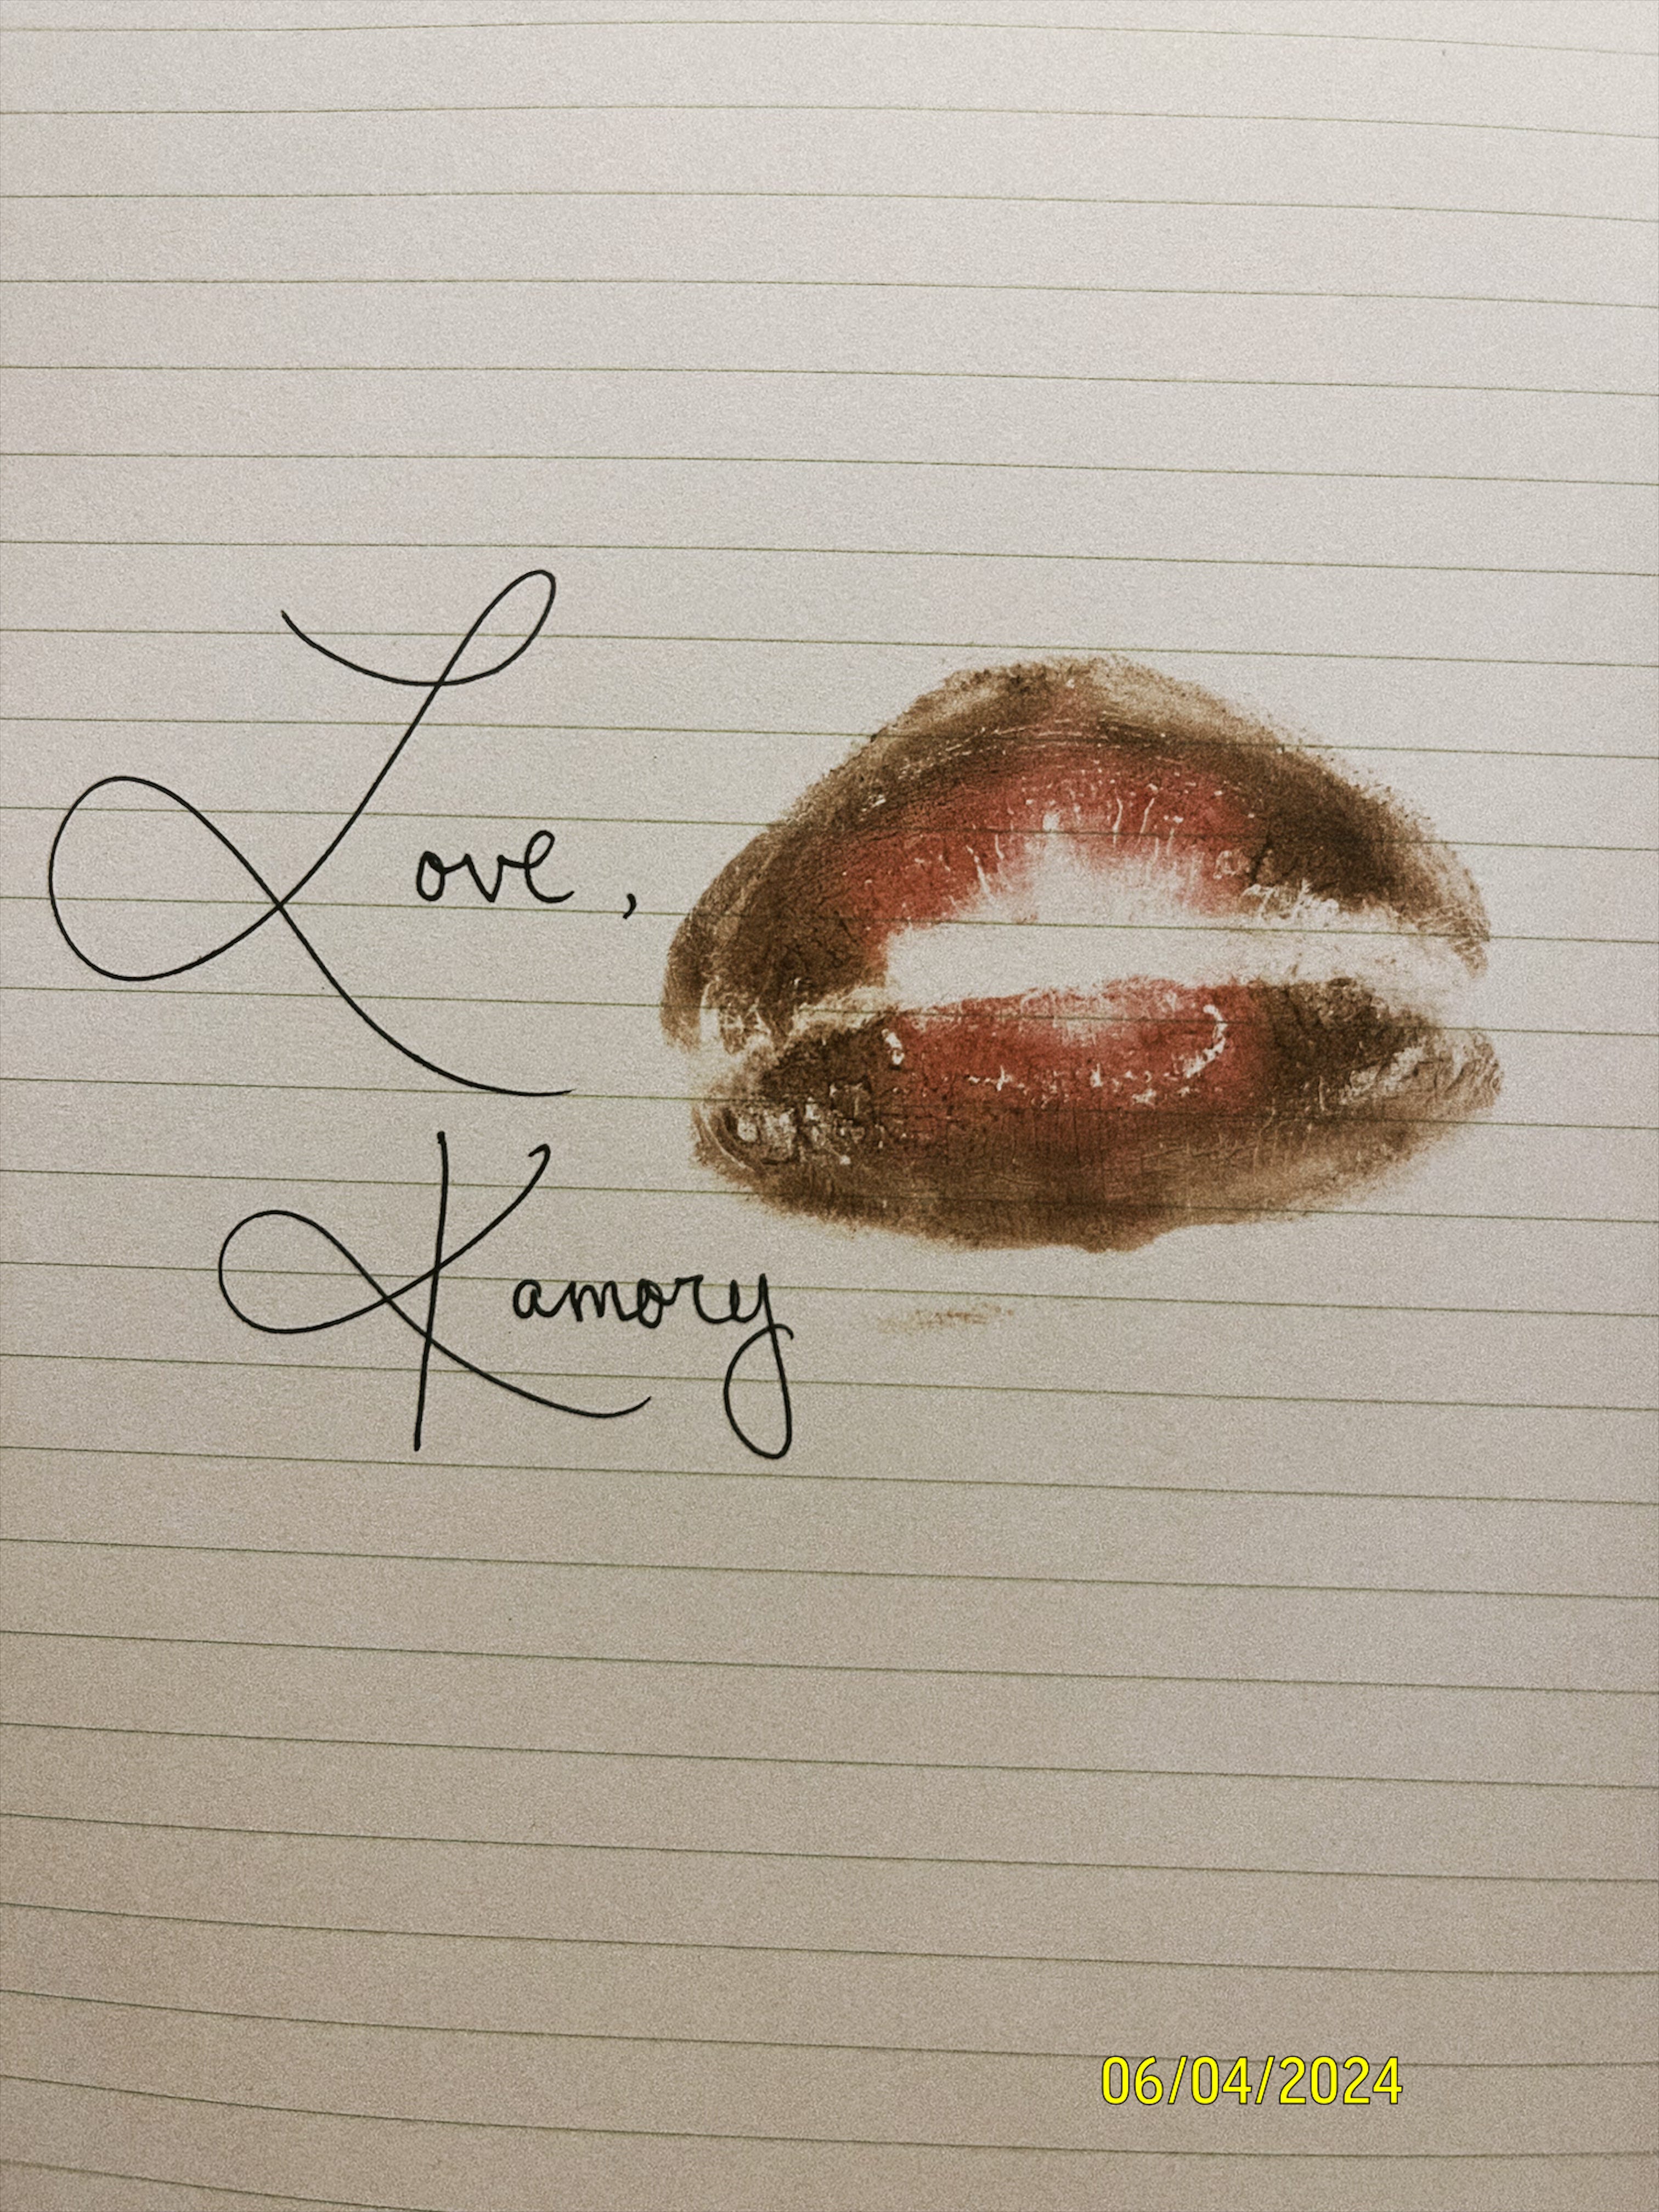 Love,
Kamory
06/04/2024